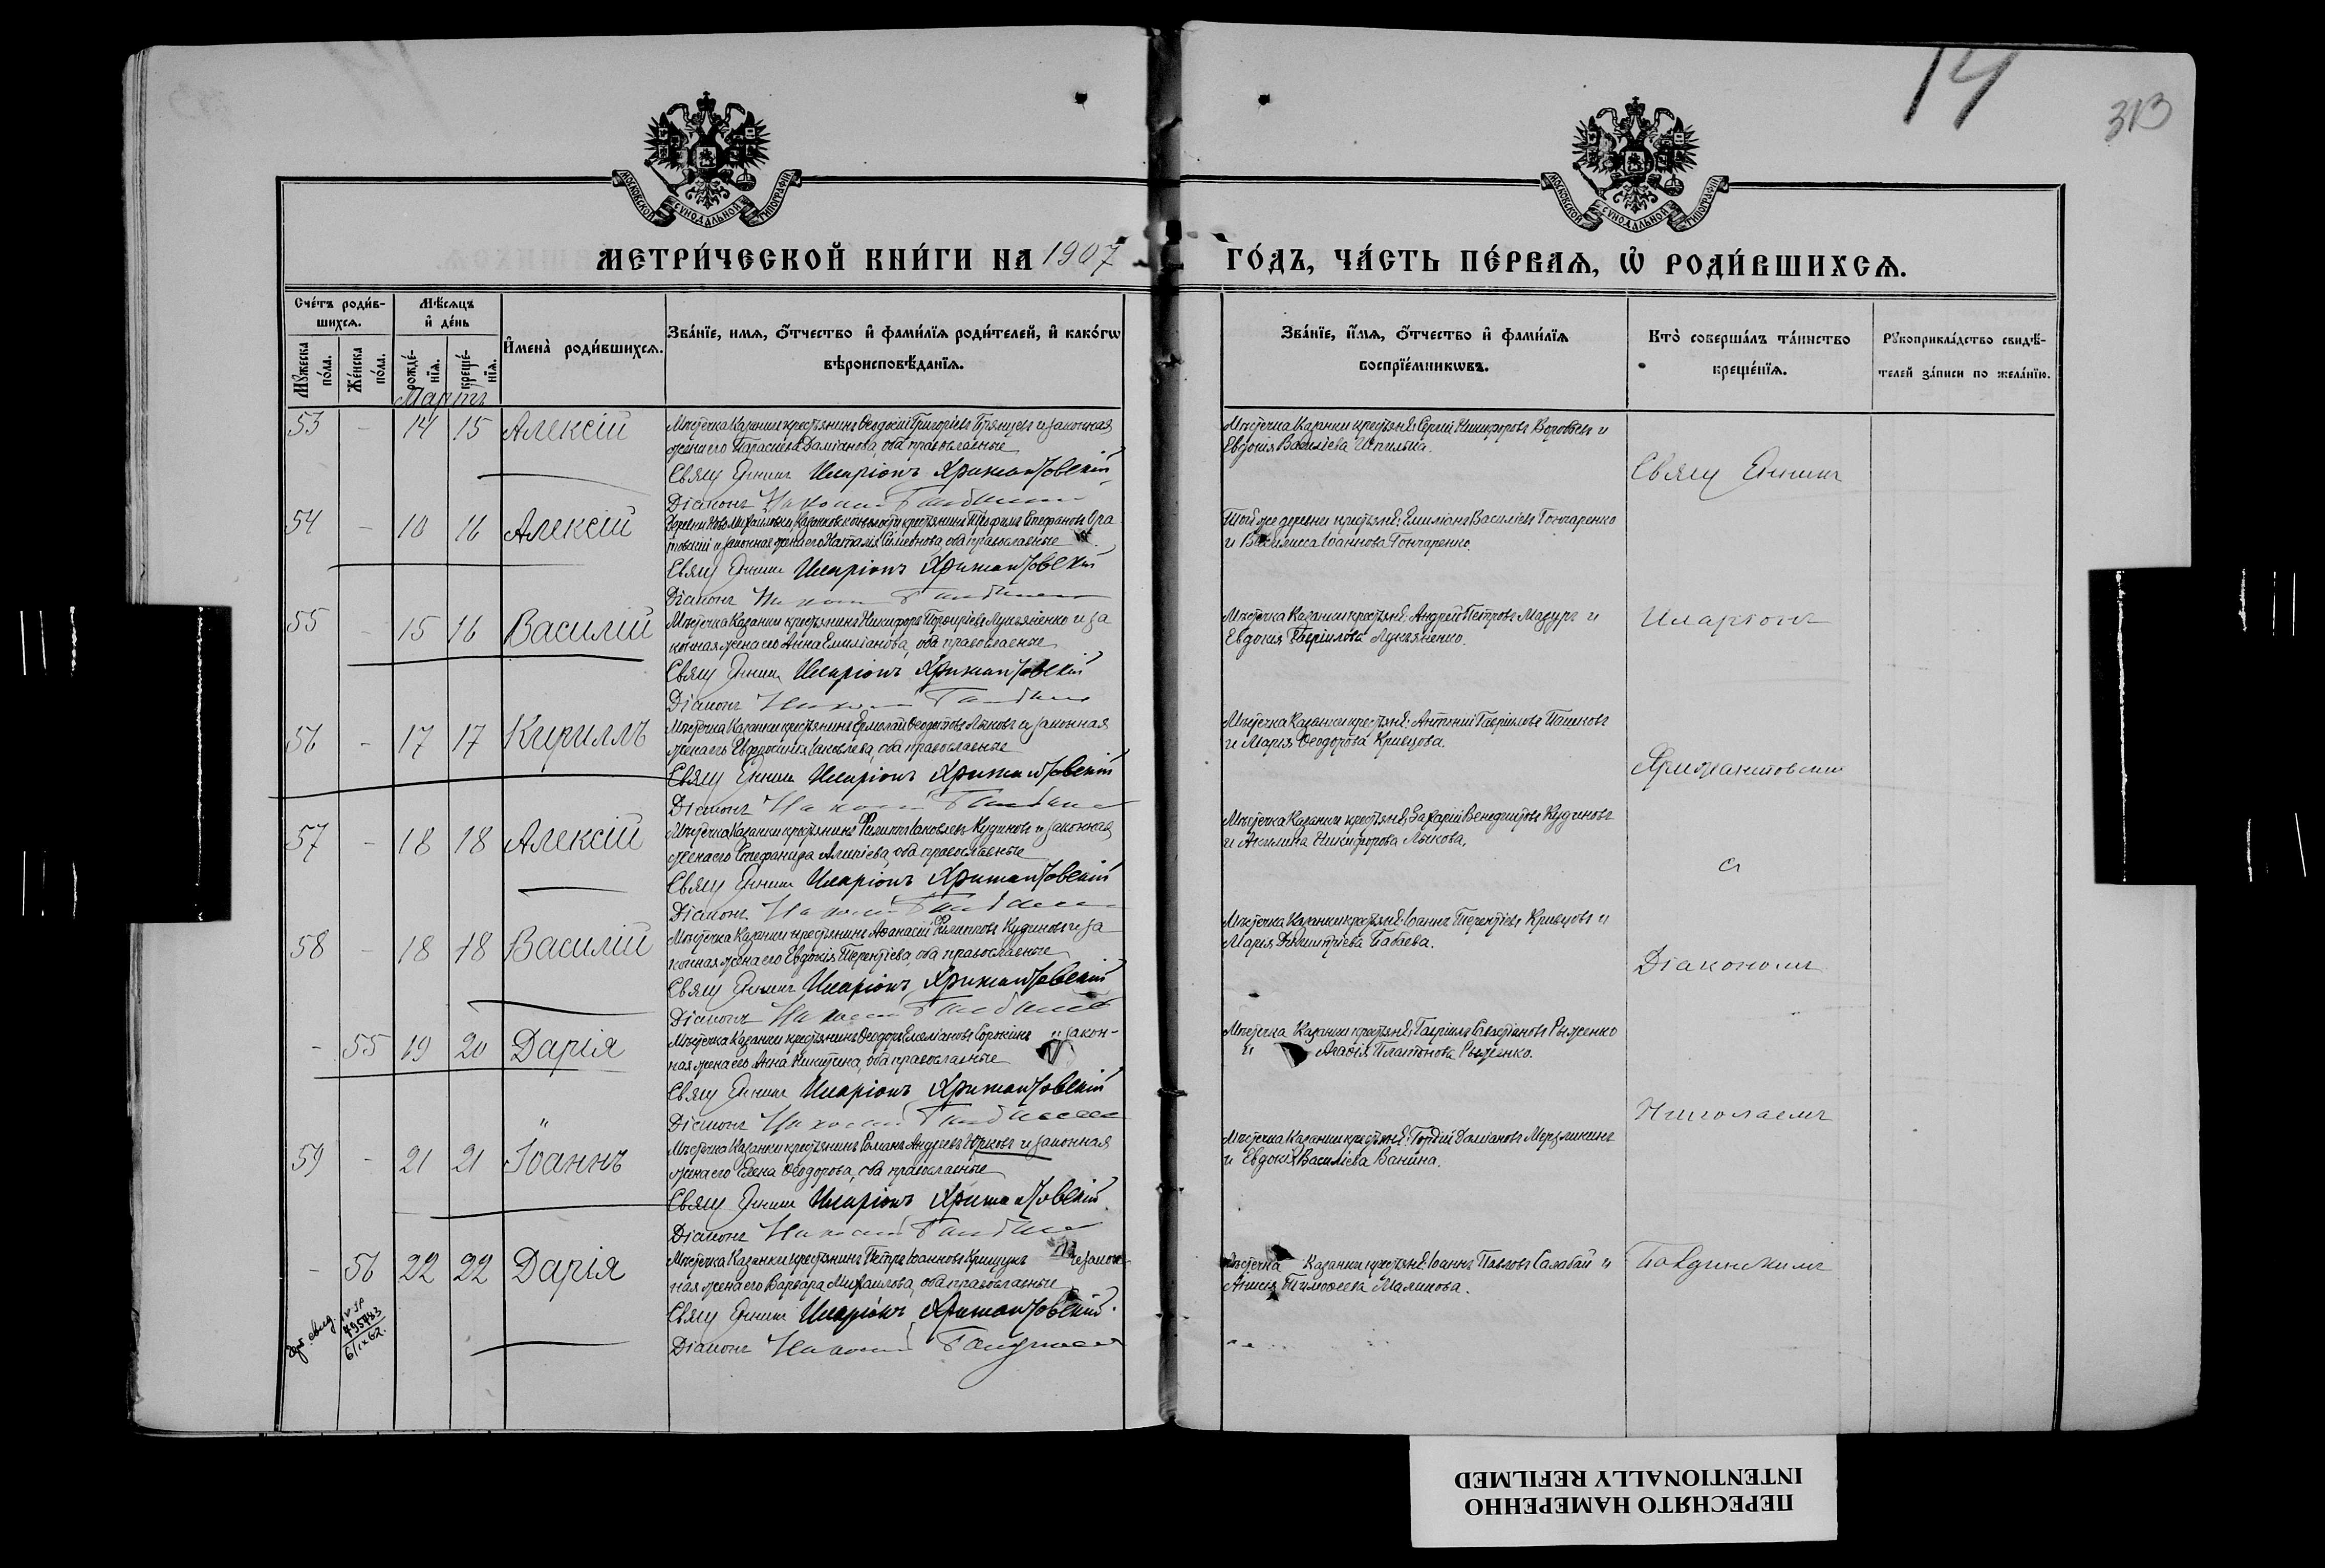 14
313
МОСКОВСКОЙ СѴНОДАЛЬНОЙ ТИПОГРАФІИ
МОСКОВСКОЙ СѴНОДАЛЬНОЙ ТИПОГРАФІИ
МЕТРИ́ЧЕСКОЙ КНИ́ГИ НА 1907
ГО́ДЪ, ЧА́СТЬ ПЕ́РВАѦ, Ѽ РОДИ́ВШИХСѦ.
Сче́тъ роди́в-
шихсѧ.
Мꙋ́жеска по́ла.
Же́нска по́ла.
Мѣ́сѧцъ
и҆ де́нь
рожде́-
нїѧ.
креще́-
нїѧ.
И҆мена̀ роди́вшихсѧ.
Зва́нїе, имѧ, о҆́тчество и҆ фами́лїѧ роди́телей, и҆ како́гѡ
вѣроисповѣ́данїѧ.
Зва́нїе, и҆́мѧ, о҆́тчество и҆ фами́лїѧ
воспрїе́мникѡвъ.
Кто̀ соверша́лъ та́инство
креще́нїѧ.
Рꙋкоприкла́дство свидѣ́-
телей за́писи по жела́нїю.
Мартъ
53 - 14 15 Алексій
Мѣстечка Казанки крестьянинъ Ѳеодосій Григоріевъ и законная
жена его Параскева Даміанова, оба православные
Иларіонъ Крижановскій
Діаконъ Николай
Мѣстечка Казанки крестьяне: Сергій Никифоровъ Воробьевъ и
Евдокія Василіева Шпилька.
54 - 10 16 Алексій
Деревни Ново-Михайловки, Казанковской волости крестьянинъ Трофимъ Стефановъ
и законная жена его Наталія Симеонова, оба православные
Иларіонъ Крижановскій
Діаконъ Николай
Той же деревни крестьяне: Емиліанъ Василіевъ Гончаренко
и Василисса Іоаннова Гончаренко.
55 - 15 16 Василій
Мѣстечка Казанки крестьянинъ Никифоръ Порфиріевъ Лукьяненко и за
конная жена его Анна Емиліанова, оба православные
Иларіонъ Крижановскій
Діаконъ Николай
Мѣстечка Казанки крестьяне: Андрей Петровъ Мазуръ и
Евдокія Гавріилова Лукьяненко.
56 - 17 17 Кириллъ
Мѣстечка Казанки крестьянинъ Ермолай Лыковъ и законная
жена его Евфросинія Іаковлева, оба православные
Иларіонъ Крижановскій
Діаконъ Николай
Мѣстечка Казанки крестьяне: Антоній Гавріиловъ Пашковъ
и Марія Ѳеодорова Кривцова.
57 - 18 18 Алексій
Мѣстечка Казанки крестьянинъ Филиппъ Іаковлевъ Кудиновъ и законная
жена его Стефанида Алипіева, оба православные
Иларіонъ Крижановскій
Діаконъ Николай
Мѣстечка Казанки крестьяне: Захарій Венедиктовъ Кудиновъ
и Акилина Никифорова Лыкова.
58 - 18 18 Василій
Мѣстечка Казанки крестьянинъ Аѳанасій Филипповъ Кудиновъ и за
конная жена его Евдокія Терентіева, оба православные
Иларіонъ Крижановскій
Діаконъ Николай
Мѣстечка Казанки крестьяне: Іоаннъ Терентіевъ Кривцовъ и
Марія Димитріева Бабаева.
- 55 19 20 Дарія
Мѣстечка Казанки крестьянинъ Ѳеодоръ Емиліановъ Сорокинъ и закон-
ная жена его Анна Никитина, оба православные
Иларіонъ Крижановскій
Діаконъ Николай
Мѣстечка Казанки крестьяне: Гавріилъ Севастіановъ Рыженко
и Агаѳія Платонова Рыженко.
59 - 21 21 Іоаннъ
Мѣстечка Казанки крестьянинъ Романъ Андреевъ Юрковъ и законная
жена его Елена Ѳеодорова, оба православные
Иларіонъ Крижановскій
Діаконъ Николай
Мѣстечка Казанки крестьяне: Гордій Даміановъ Мерзликинъ
и Евдокія Василіева Ванина.
- 56 22 22 Дарія
Мѣстечка Казанки крестьянинъ Петръ Іоанновъ Крищукъ и закон-
ная жена его Варвара Михаилова, оба православные
Иларіонъ Крижановскій
Діаконъ Николай
Мѣстечка Казанки крестьяне: Іоаннъ Павловъ Салабай и
Анисія Тимоѳеева Маликова.
Иларіонъ
Крижановскій
съ
Діакономъ
Николаемъ
ПЕРЕСНЯТО НАМЕРЕННО
INTENTIONALLY REFILMED